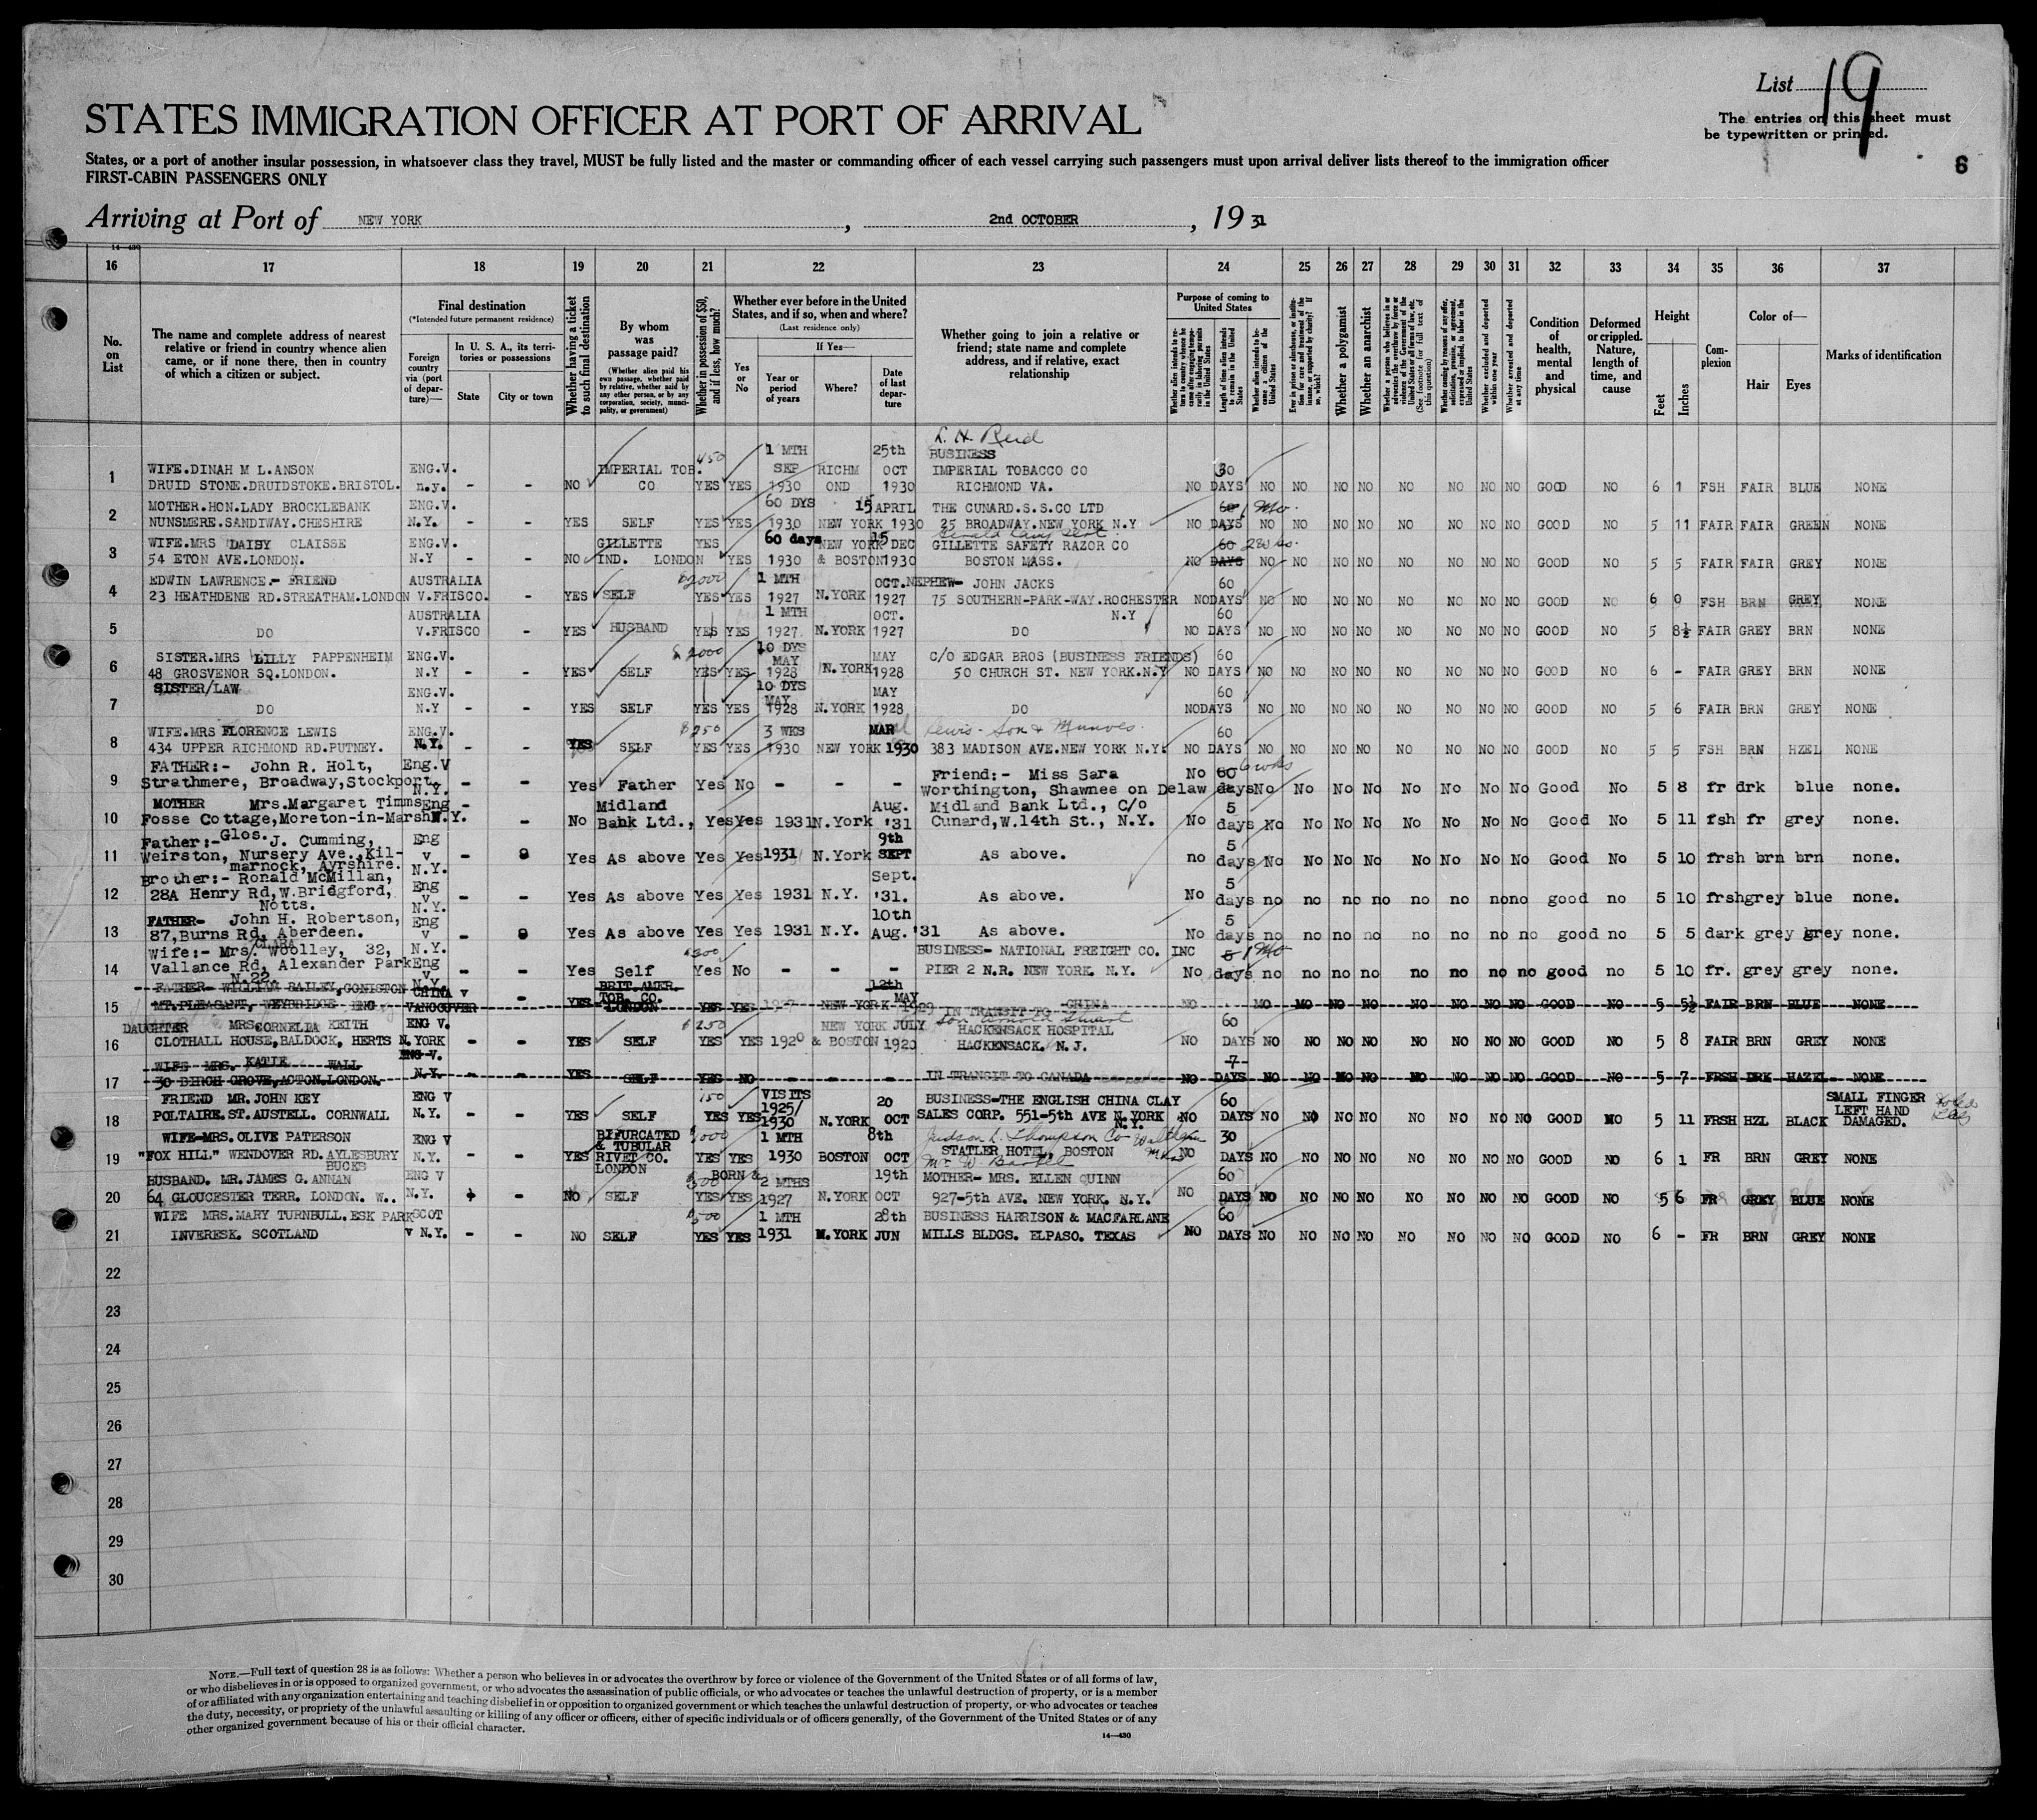 List 19
STATES IMMIGRATION OFFICER AT PORT OF ARRIVAL
The entries on this sheet must
be typewritten or printed.
6
States, or a port of another insular possession, in whatsoever class they travel, MUST be fully listed and the master or commanding officer of each vessel carrying such passengers must upon arrival deliver lists thereof to the immigration officer
FIRST-CABIN PASSENGERS ONLY
Arriving at Port of NEW YORK, 2nd OCTOBER, 1931
14-430
16 17 18 19 20 21 22 23 24 25 26 27 28 29 30 31 32 33 34 35 36 37
No. on List
The name and complete address of nearest relative or friend in country whence alien came, or if none there, then in country of which a citizen or subject.
Final destination
(*Intended future permanent residence)
Foreign country via (port of departure)—
In U. S. A., its territories or possessions
State
City or town
Whether having a ticket to such final destination
By whom was passage paid?
(Whether alien paid his own passage, whether paid by relative, whether paid by any other person, or by any corporation, society, municipality, or government)
Whether in possession of $50, and if less, how much?
Whether ever before in the United States, and if so, when and where?
(Last residence only)
If Yes—
Yes or No
Year or period of years
Where?
Date of last departure
Whether going to join a relative or friend; state name and complete address, and if relative, exact relationship
Purpose of coming to United States
Length of time alien intends to remain in the United States
Whether alien intends to become a citizen of the United States
Whether a polygamist
Whether an anarchist
Whether excluded and deported within one year
Whether arrested and deported at any time
Condition of health, mental and physical
Deformed or crippled. Nature, length of time, and cause
Height
Feet
Inches
Complexion
Color of—
Hair
Eyes
Marks of identification
L. H. Reid
1 MTH 25th BUSINESS
1 WIFE.DINAH M L.ANSON ENG.V. IMPERIAL TOB. 450 SEP RICHM OCT IMPERIAL TOBACCO CO 30
DRUID STONE.DRUIDSTOKE.BRISTOL. n.y. - - NO CO YES YES 1930 OND 1930 RICHMOND VA. NO DAYS NO NO NO NO NO NO NO NO GOOD NO 6 1 FSH FAIR BLUE NONE
2 MOTHER.HON.LADY BROCKLEBANK ENG.V. 60 DYS 15 APRIL THE CUNARD.S.S.CO LTD 60 1 Mo.
NUNSMERE.SANDIWAY.CHESHIRE N.Y. - - YES SELF YES YES 1930 NEW YORK 1930 25 BROADWAY.NEW YORK N.Y NO DAYS NO NO NO NO NO NO NO NO GOOD NO 5 11 FAIR FAIR GREEN NONE
3 WIFE.MRS DAISY CLAISSE ENG.V. GILLETTE YES 60 days NEW YORK 15 DEC GILLETTE SAFETY RAZOR CO 60 2 wks.
54 ETON AVE.LONDON. N.Y - - NO IND. LONDON YES 1930 & BOSTON 1930 BOSTON MASS. NO DAYS NO NO NO NO NO NO NO NO GOOD NO 5 5 FAIR FAIR GREY NONE
4 EDWIN LAWRENCE.- FRIEND AUSTRALIA $2000 1 MTH OCT. NEPHEW- JOHN JACKS 60
23 HEATHDENE RD.STREATHAM.LONDON V.FRISCO. - YES SELF YES YES 1927 N.YORK 1927 75 SOUTHERN-PARK-WAY.ROCHESTER NO DAYS NO NO NO NO NO NO NO NO GOOD NO 6 0 FSH BRN GREY NONE
5 AUSTRALIA 1 MTH OCT. N.Y 60
DO V.FRISCO - YES HUSBAND YES YES 1927 N.YORK 1927 DO NO DAYS NO NO NO NO NO NO NO NO GOOD NO 5 8½ FAIR GREY BRN NONE
6 SISTER.MRS LILLY PAPPENHEIM ENG.V. $2000 10 DYS MAY MAY C/O EDGAR BROS (BUSINESS FRIENDS) 60
48 GROSVENOR SQ.LONDON. N.Y - - YES SELF YES YES 1928 N.YORK 1928 50 CHURCH ST. NEW YORK.N.Y NO DAYS NO NO NO NO NO NO NO NO GOOD NO 6 - FAIR GREY BRN NONE
7 SISTER/LAW ENG.V. 10 DYS MAY MAY 60
DO N.Y - - YES SELF YES YES 1928 N.YORK 1928 DO NO DAYS NO NO NO NO NO NO NO NO GOOD NO 5 6 FAIR BRN GREY NONE
8 WIFE.MRS FLORENCE LEWIS ENG.V. $250 3 WKS MAR Lewis- Son & Munves 60
434 UPPER RICHMOND RD.PUTNEY. N.Y. - - YES SELF YES YES 1930 NEW YORK 1930 383 MADISON AVE.NEW YORK N.Y. NO DAYS NO NO NO NO NO NO NO NO GOOD NO 5 5 FSH BRN HZEL NONE
9 FATHER:- John R. Holt, Eng.V Friend:- Miss Sara No 60 6 wks
Strathmere, Broadway,Stockport. N.Y. - - Yes Father Yes No - - - Worthington, Shawnee on Delaw days No No No No No No No No Good No 5 8 fr drk blue none.
10 MOTHER Mrs.Margaret Timms Eng - Midland Aug. Midland Bank Ltd., C/o 5
Fosse Cottage,Moreton-in-Marsh N.Y. - No Bank Ltd., Yes Yes 1931 N.York '31 Cunard,W.14th St., N.Y. No days No No No No No No No No Good No 5 11 fsh fr grey none.
Glos.
11 Father:- J. Cumming, Eng 9th 5
Weirston, Nursery Ave.,Kil- v - Yes As above Yes Yes 1931 N.York SEPT As above. no days No No No No No No No No Good No 5 10 frsh brn brn none.
marnock, Ayrshire. N.Y.
12 Brother:- Ronald McMillan, Eng Sept. 5
28A Henry Rd,W.Bridgford, v - - Yes As above Yes Yes 1931 N.Y. '31. As above. No days no no no no no no no no good no 5 10 frsh grey blue none.
Notts. N.Y.
13 FATHER- John H. Robertson, Eng 10th 5
87,Burns Rd, Aberdeen. v - Yes As above Yes Yes 1931 N.Y. Aug.'31 As above. No days no no no no no no no no good no 5 5 dark grey grey none.
14 Wife:- Mrs. CLARA Woolley, 32, N.Y. $200 BUSINESS- NATIONAL FREIGHT CO. INC 5 1 Mo
Vallance Rd, Alexander Park Eng v. - - Yes Self Yes No - - - PIER 2 N.R. NEW YORK. N.Y. No days no no no no no no no no good no 5 10 fr. grey grey none.
N.22 N.Y.
15 FATHER- WILLIAM BAILEY, CONISTON CHINA v BRIT.AMER. TOB. CO. 12th MAY
MT.PLEASANT, WEYBRIDGE ENG VANCOUVER - YES LONDON YES YES NEW YORK 1929 IN TRANSIT TO CHINA NO NO NO NO NO NO NO NO NO GOOD NO 5 5½ FAIR BRN BLUE NONE
16 DAUGHTER MRS.CORNELIA KEITH ENG V. $250 NEW YORK JULY Son Arnold Stuart HACKENSACK HOSPITAL 60
CLOTHALL HOUSE,BALDOCK, HERTS N.YORK - - YES SELF YES YES 1920 & BOSTON 1920 HACKENSACK. N.J. NO DAYS NO NO NO NO NO NO NO NO GOOD NO 5 8 FAIR BRN GREY NONE
17 WIFE MRS. KATIE WALL ENG V. 7
30 BIRCH GROVE,ACTON.LONDON. N.Y. - - YES SELF YES NO - - - IN TRANSIT TO CANADA NO DAYS NO NO NO NO NO NO NO NO GOOD NO 5 7 FRSH DRK HAZEL NONE
18 FRIEND MR.JOHN KEY ENG V 150 VISITS 1925/ 20 BUSINESS-THE ENGLISH CHINA CLAY 60 SMALL FINGER LEFT HAND
POLTAIRE.ST.AUSTELL. CORNWALL N.Y. - - YES SELF YES YES 1930 N.YORK OCT SALES CORP. 551-5th AVE N.YORK N.Y. NO DAYS NO NO NO NO NO NO NO NO GOOD NO 5 11 FRSH HZL BLACK DAMAGED.
19 WIFE-MRS.OLIVE PATERSON ENG V BIFURCATED & TUBULAR $1000 1 MTH 8th Judson L. Thompson Co Waltham Mass 30
"FOX HILL" WENDOVER RD.AYLESBURY BUCKS N.Y. - - YES RIVET CO. LONDON YES YES 1930 BOSTON OCT STATLER HOTEL, BOSTON NO DAYS NO NO NO NO NO NO NO NO GOOD NO 6 1 FR BRN GREY NONE
20 HUSBAND. MR.JAMES G.ANNAN ENG V $500 BORN & 2 MTHS 19th MOTHER- MRS. ELLEN QUINN 60
64 GLOUCESTER TERR. LONDON. W.. N.Y. - NO SELF YES YES 1927 N.YORK OCT 927-5th AVE. NEW YORK. N.Y. NO DAYS NO NO NO NO NO NO NO NO GOOD NO 5 6 FR GREY BLUE NONE
21 WIFE MRS.MARY TURNBULL.ESK PARK SCOT $500 1 MTH 28th BUSINESS HARRISON & MACFARLANE 60
INVERESK. SCOTLAND V N.Y. - - NO SELF YES YES 1931 N.YORK JUN MILLS BLDGS. ELPASO. TEXAS NO DAYS NO NO NO NO NO NO NO NO GOOD NO 6 - FR BRN GREY NONE
22
23
24
25
26
27
28
29
30
NOTE.—Full text of question 28 is as follows: Whether a person who believes in or advocates the overthrow by force or violence of the Government of the United States or of all forms of law,
or who disbelieves in or is opposed to organized government, or who advocates the assassination of public officials, or who advocates or teaches the unlawful destruction of property, or is a member
of or affiliated with any organization entertaining and teaching disbelief in or opposition to organized government or which teaches the unlawful destruction of property, or who advocates or teaches
the duty, necessity, or propriety of the unlawful assaulting or killing of any officer or officers, either of specific individuals or of officers generally, of the Government of the United States or of any
other organized government because of his or their official character.
14-430